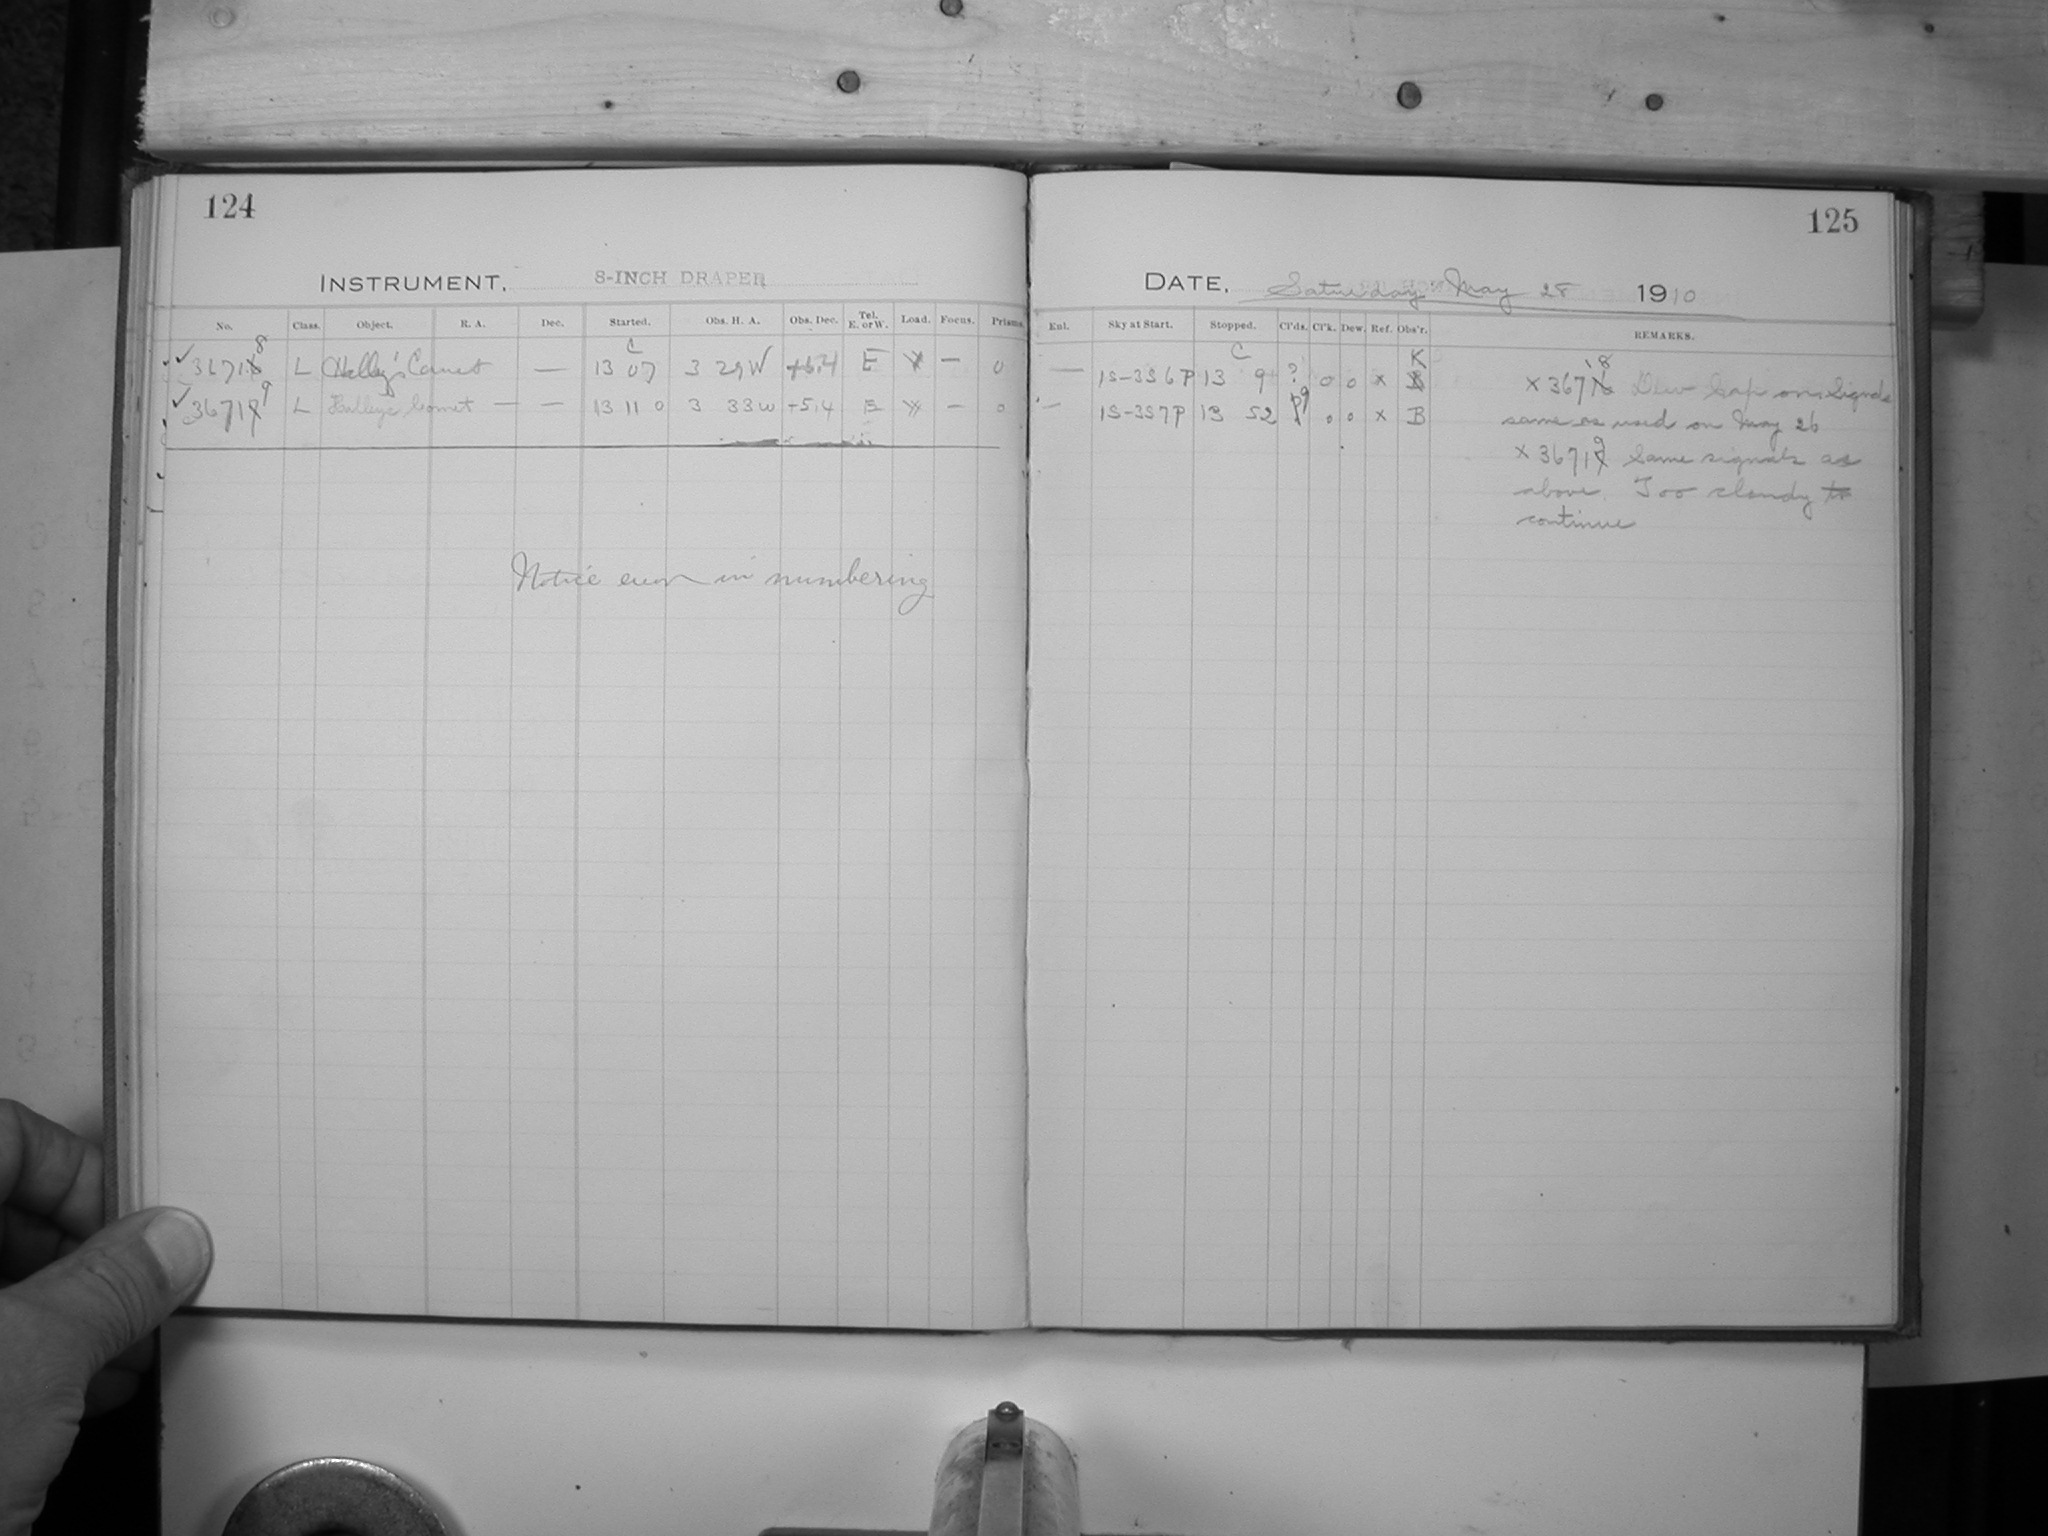 124
INSTRUMENT. 8-INCH DRAPER
No. Class. Object. R. A. Dec. Started. Obs. H. A. Obs. Dec. Tel. E. or W. Load. Focus. Prisms.
8 C
36718 L Halley's Comet — 13 07 3 29 W +5.4 E — 0
9
3671 L Halleys Comet — — 13 11 0 3 33 W +5.4 E — 0
Notice error in numbering
125
DATE. Saturday May 28 1910
Enl. Sky at Start. Stopped. Cl'ds. Cl'k. Dew. Ref. Obs'r. REMARKS.
C K
— 1S-3S6P 13 9 ? 0 0 x
— 1S-3S7P 13 52 0 0 x B
8
x 3671 Dew Cap on. Signals
same as used on May 26
9
x 3671 Same signals as
above. Too cloudy to
continue